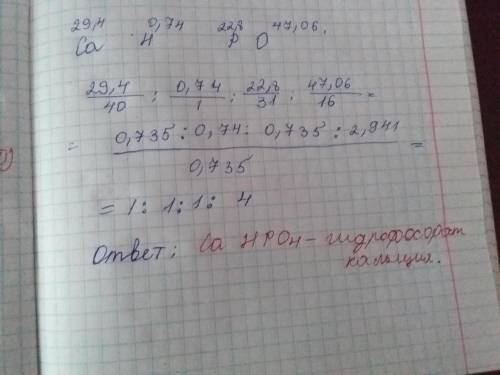 29,4 0,74 22,8 47,06.
Ca H P O
29,4/40 : 0,74/1 : 22,8/31 : 47,06/16 =
= 0,735 : 0,74 : 0,735 : 2,941 / 0,735 =
= 1 : 1 : 1 : 4
Ответ: CaHPO4 – гидрофосфорат
кальция.